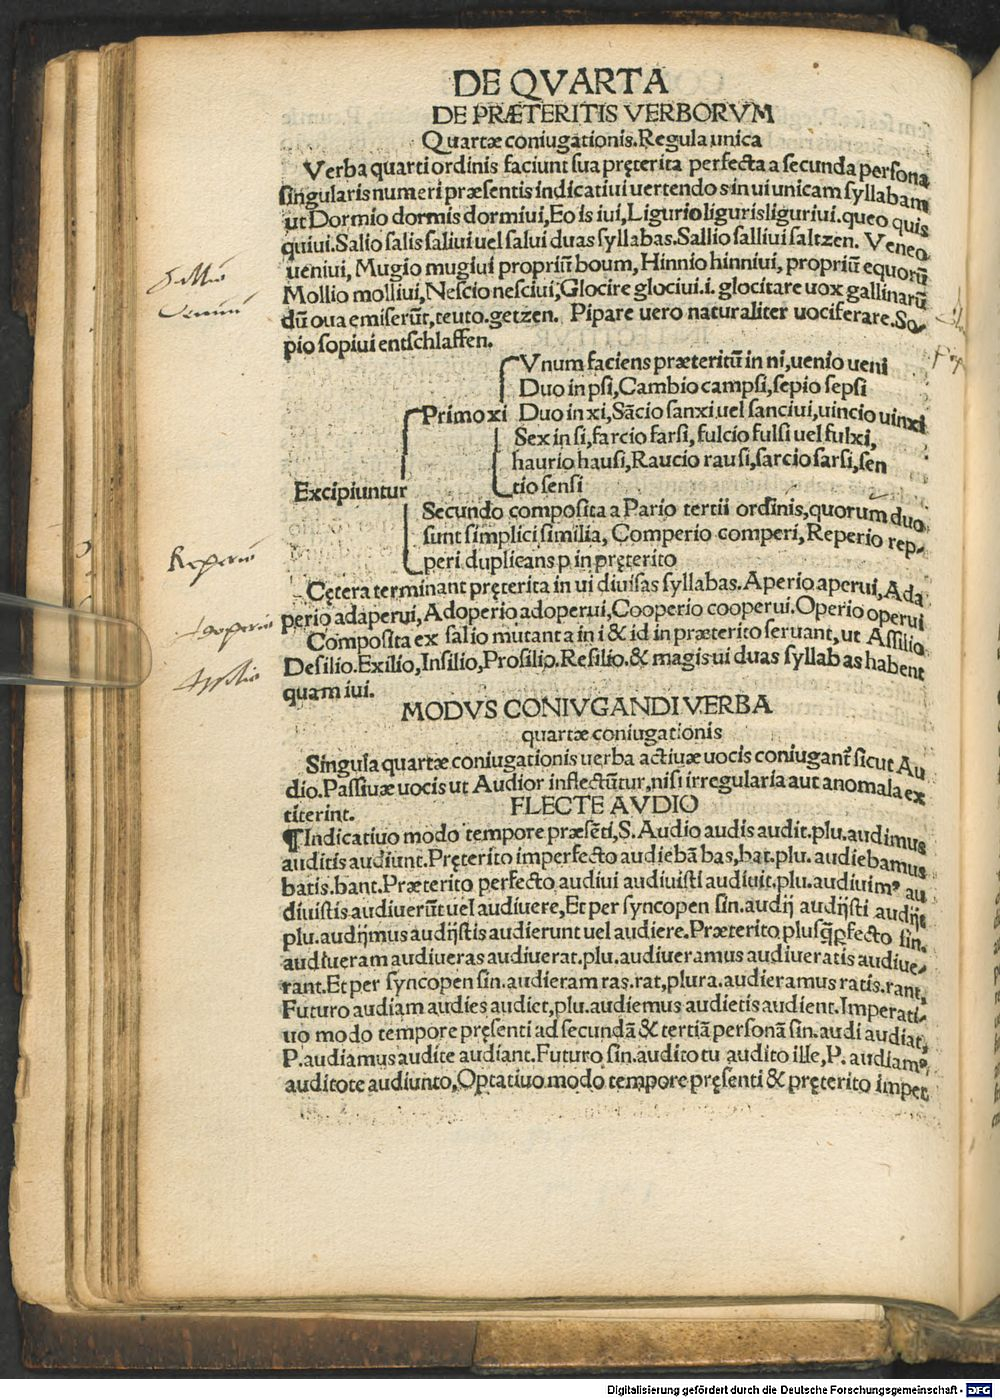 DE QVARTA
DE PRÆTERITIS VERBORVM
Quartæ coniugationis.Regula unica
Verba quarti ordinis faciunt sua pręterita perfecta a secunda persona
singularis numeri præsentis indicatiui uertendo s in ui unicam syllabam
ut Dormio dormis dormiui,Eo is iui,Ligurio liguris liguriui.queo quis
quiui.Salio salis saliui uel salui duas syllabas.Sallio salliui saltzen. Veneo
ueniui, Mugio mugiui propriū boum, Hinnio hinniui, propriū equorū
Mollio molliui,Nescio nesciui,Glocire glociui.i. glocitare uox gallinarū
dū oua emiserūt,teuto.getzen. Pipare uero naturaliter uociferare.So-
pio sopiui entschlaffen.
Vnum faciens præteritū in ni,uenio ueni
Duo in psi,Cambio campsi,sepio sepsi
Primo xi Duo in xi,Sācio sanxi uel sanciui,uincio uinxi
Sex in si,farcio farsi,fulcio fulsi uel fulxi,
haurio hausi,Raucio rausi,sarcio sarsi,sen
tio sensi
Excipiuntur
Secundo composita a Pario tertii ordinis,quorum duo
sunt simplici similia, Comperio comperi,Reperio rep-
peri duplicans p in pręterito
Cętera terminant pręterita in ui diuisas syllabas.Aperio aperui,Ada
perio adaperui,Adoperio adoperui,Cooperio cooperui.Operio operui
Composita ex salio mutant a in i & id in præterito seruant,ut Assilio
Desilio.Exilio,Insilio,Prosilio.Resilio.& magis ui duas syllabas habent
quam iui.
MODVS CONIVGANDI VERBA
quartæ coniugationis
Singula quartæ coniugationis uerba actiuæ uocis coniugant᷑ sicut Au
dio.Passiuæ uocis ut Audior inflectūtur,nisi irregularia aut anomala ex
titerint.
FLECTE AVDIO
¶Indicatiuo modo tempore præsēti,S.Audio audis audit.plu.audimus
auditis audiunt.Pręterito imperfecto audiebā bas,bat.plu.audiebamus
batis.bant.Præterito perfecto audiui audiuisti audiuit.plu.audiuimꝰ au
diuistis audiuerūt uel audiuere,Et per syncopen sin.audij audijsti audijt
plu.audijmus audijstis audierunt uel audiere.Præterito plusq̄ꝑfecto sin.
audiueram audiueras audiuerat.plu.audiueramus audiueratis audiue-
rant.Et per syncopen sin.audieram ras.rat,plura.audieramus ratis.rant,
Futuro audiam audies audiet,plu.audiemus audietis audient.Imperati-
uo modo tempore pręsenti ad secundā & tertiā personā sin.audi audiat,
P.audiamus audite audiant.Futuro sin.audito tu audito ille,P. audiamꝰ,
auditote audiunto,Optatiuo modo tempore pręsenti & pręterito imper
Sallio
Reperio
Cooperio
Assilio
Digitalisierung gefördert durch die Deutsche Forschungsgemeinschaft - DFG